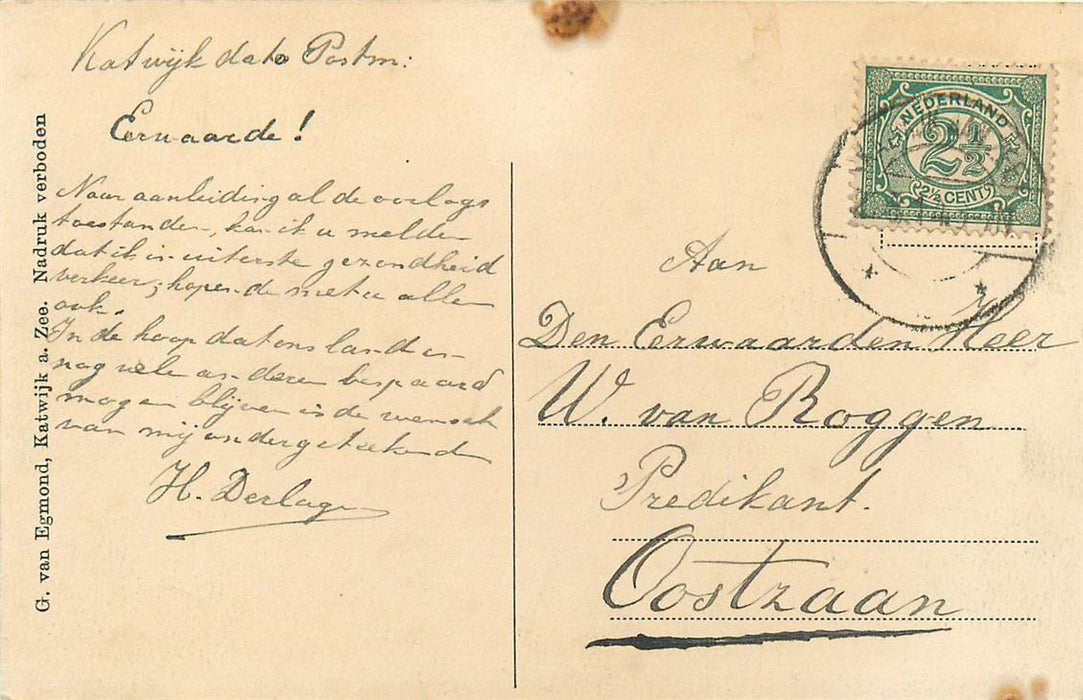 Katwijk dato Postm:
Eerwaarde!
Naar aanleiding al de oorlogs
toestanden, kan ik u melden
dat ik in uiterste gezondheid
verkeer, hopende met u allen
ook.
In de hoop dat ons land en
nog vele anderen bespaard
mogen blijven is de wensch
van mij ondergeteekende
H. Derlage
G. van Egmond, Katwijk a. Zee. Nadruk verboden
NEDERLAND
2½
2½ CENT
Aan
Den Eerwaarden Heer
W. van Roggen
Predikant.
Oostzaan